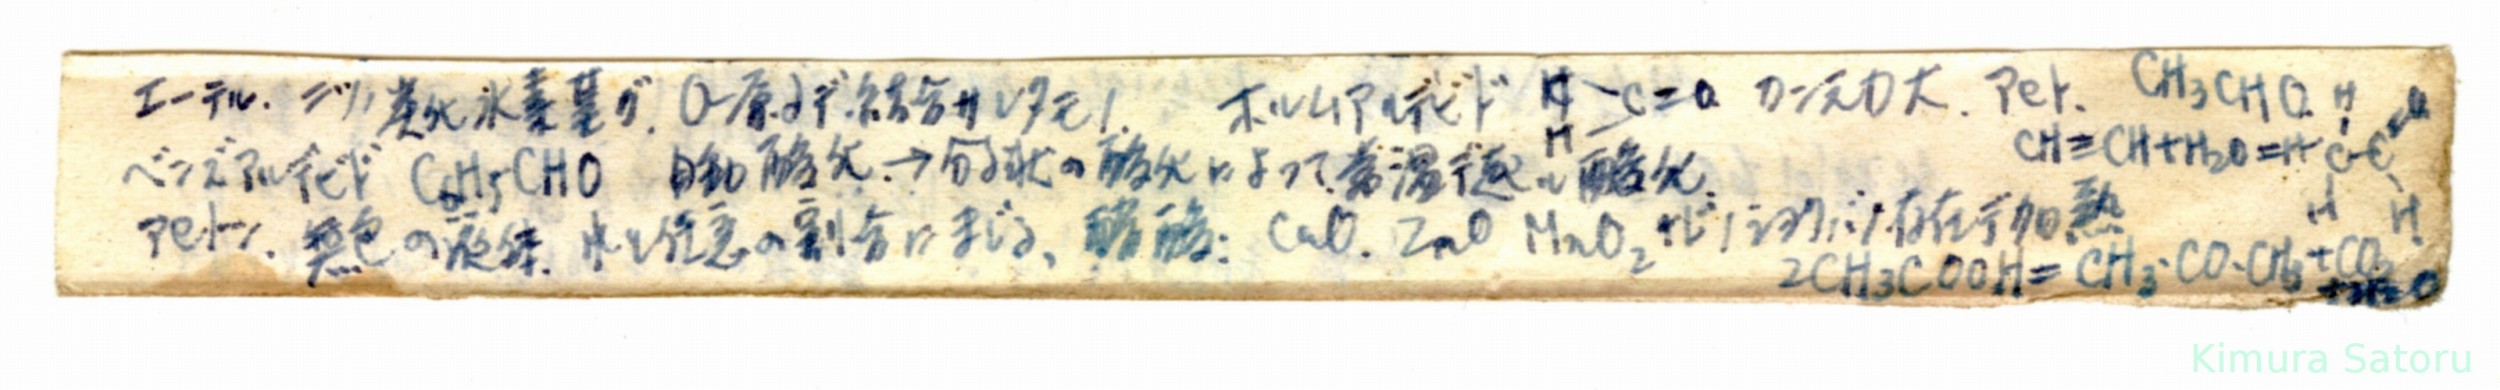 エーテル. 二ツノ炭化水素基ガ. O原子デ結合サレタモノ. ホルムアルデヒド H H C=O カンゲン力大. アセト. CH3CHO
ベンズアルデヒド C6H5CHO 自動酸化→分子状の酸化によって常温で 酸化. CH≡CH+H2O=H C-C=O H H H
アセトン. 無色の液体. 水と任意の割合にまじる、酢酸: CaO. ZnO MnO2 ナドノショクバイノ存在デ加熱
2CH3COOH=CH3·CO·CH3+CO2
Kimura Satoru